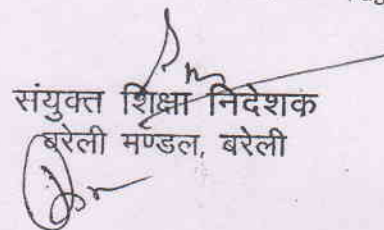 संयुक्त शिक्षा निदेशक
बरेली मण्डल, बरेली